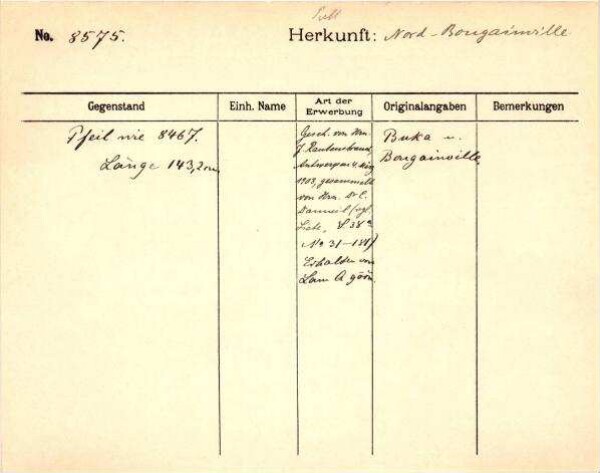 No. 8575.
Herkunft: Nord-Bougainville
Gegenstand Einh. Name Art der Erwerbung Originalangaben Bemerkungen
Pfeil wie 8467.
Länge 143,2 cm
Gesch. von Hrn.
J. Rautenstrauch,
Antwerpen 4. März
1908, gesammelt
von Hrn. Dr E.
(vgl.
Liste,
No 31-181)
Erhalten von
Buka u.
Bougainville